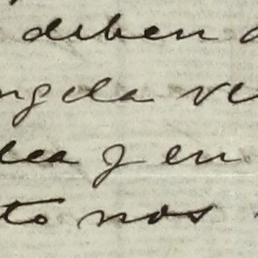 deben
ngela ve
lea y en
to nos